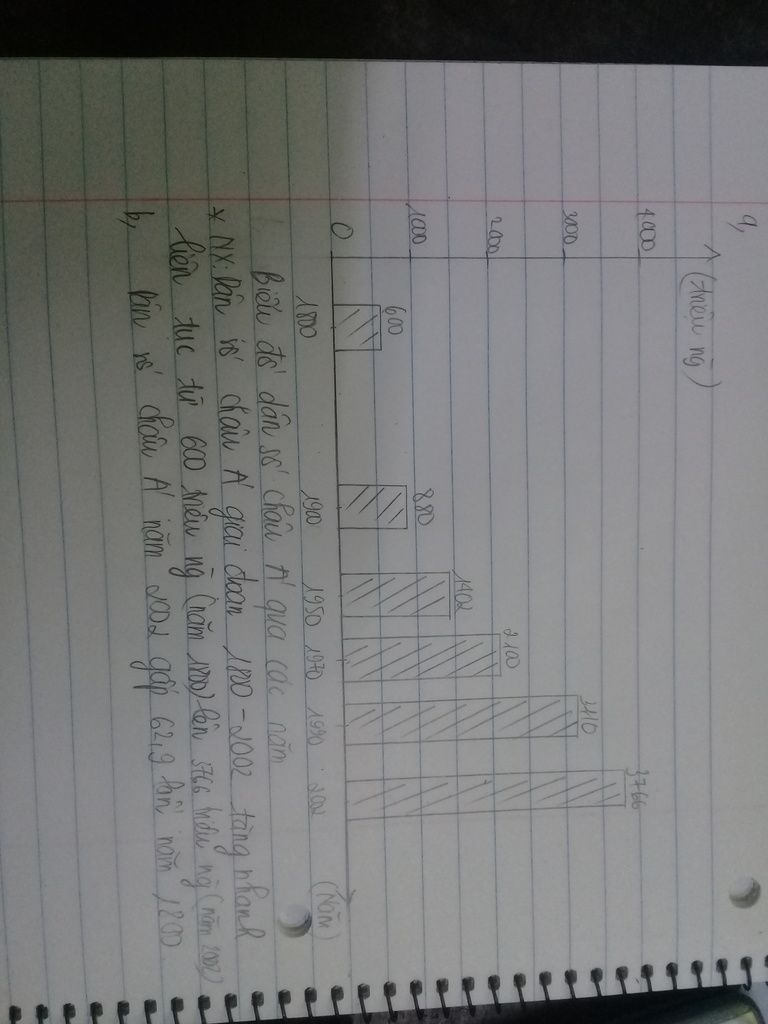 a,
(triệu ng)
4000
3000
2000
1000
0
600
880
1402
2100
3110
3766
1800 1900 1950 1970 1990 2002
(Năm)
Biểu đồ dân số châu Á qua các năm
* NX: Dân số châu Á giai đoạn 1800-2002 tăng nhanh
liên tục từ 600 triệu ng (năm 1800) lên 3766 triệu ng (năm 2002)
b, Dân số châu Á năm 2002 gấp 62,9 lần năm 1800